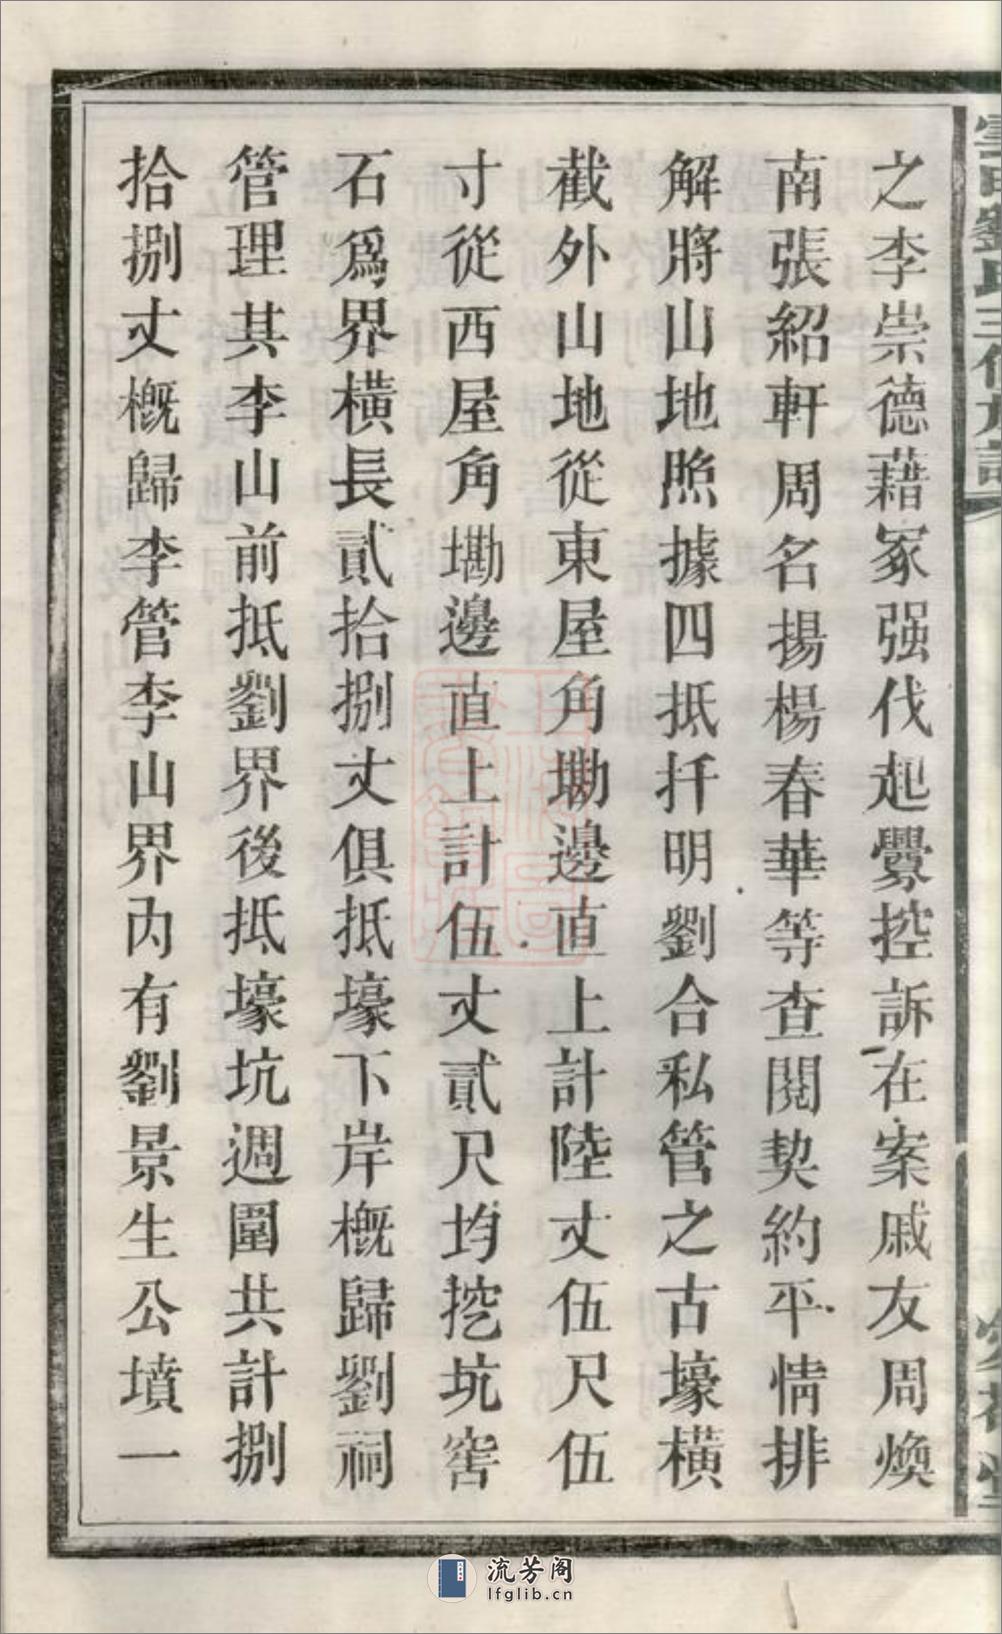 之李崇德藉冢强伐起釁控訴在案戚友周煥
南張紹軒周名揚楊春華等查閱契約平情排
解將山地照據四抵扦明劉合私管之古壕橫
截外山地從東屋角墈邊直上計陸丈伍尺伍
寸從西屋角墈邊直上計伍丈貳尺均挖坑窖
石爲界橫長貳拾捌丈俱抵壕下岸概歸劉祠
管理其李山前抵劉界後抵壕坑週圍共計捌
拾捌丈概歸李管李山界內有劉景生公墳一
流芳阁
lfglib.cn